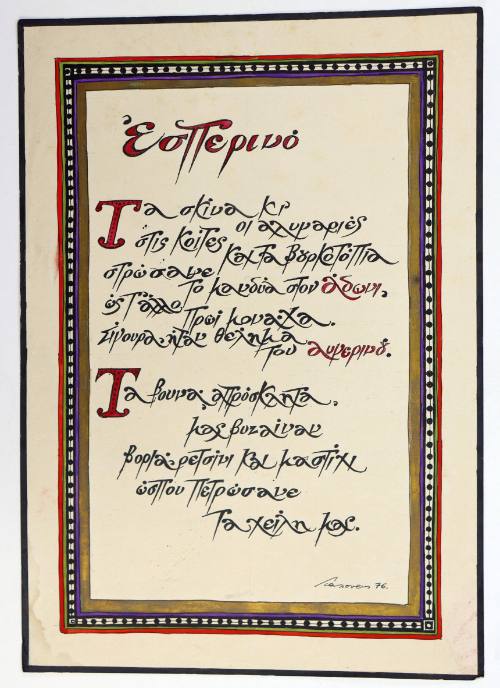 Ἑσπερινό
Τα σκίνα κι
οἱ ἀλυμαριές
στίς κοίτες καί τα βουρκοτόπια
στρώσανε
το κανδύα στον ἄδωνι,
ὡς τ' ἄλλο
πρωί μονάχα.
Σίγουρα ἦταν θέλημα
του λυμερινό.
Τα βουνά, ἀπρόσκλητα,
μας βυζαίναν
βοριά, ρετσίνι και μαστίχι
ὥσπου πετρώσανε
τα χείλη μας.
76.